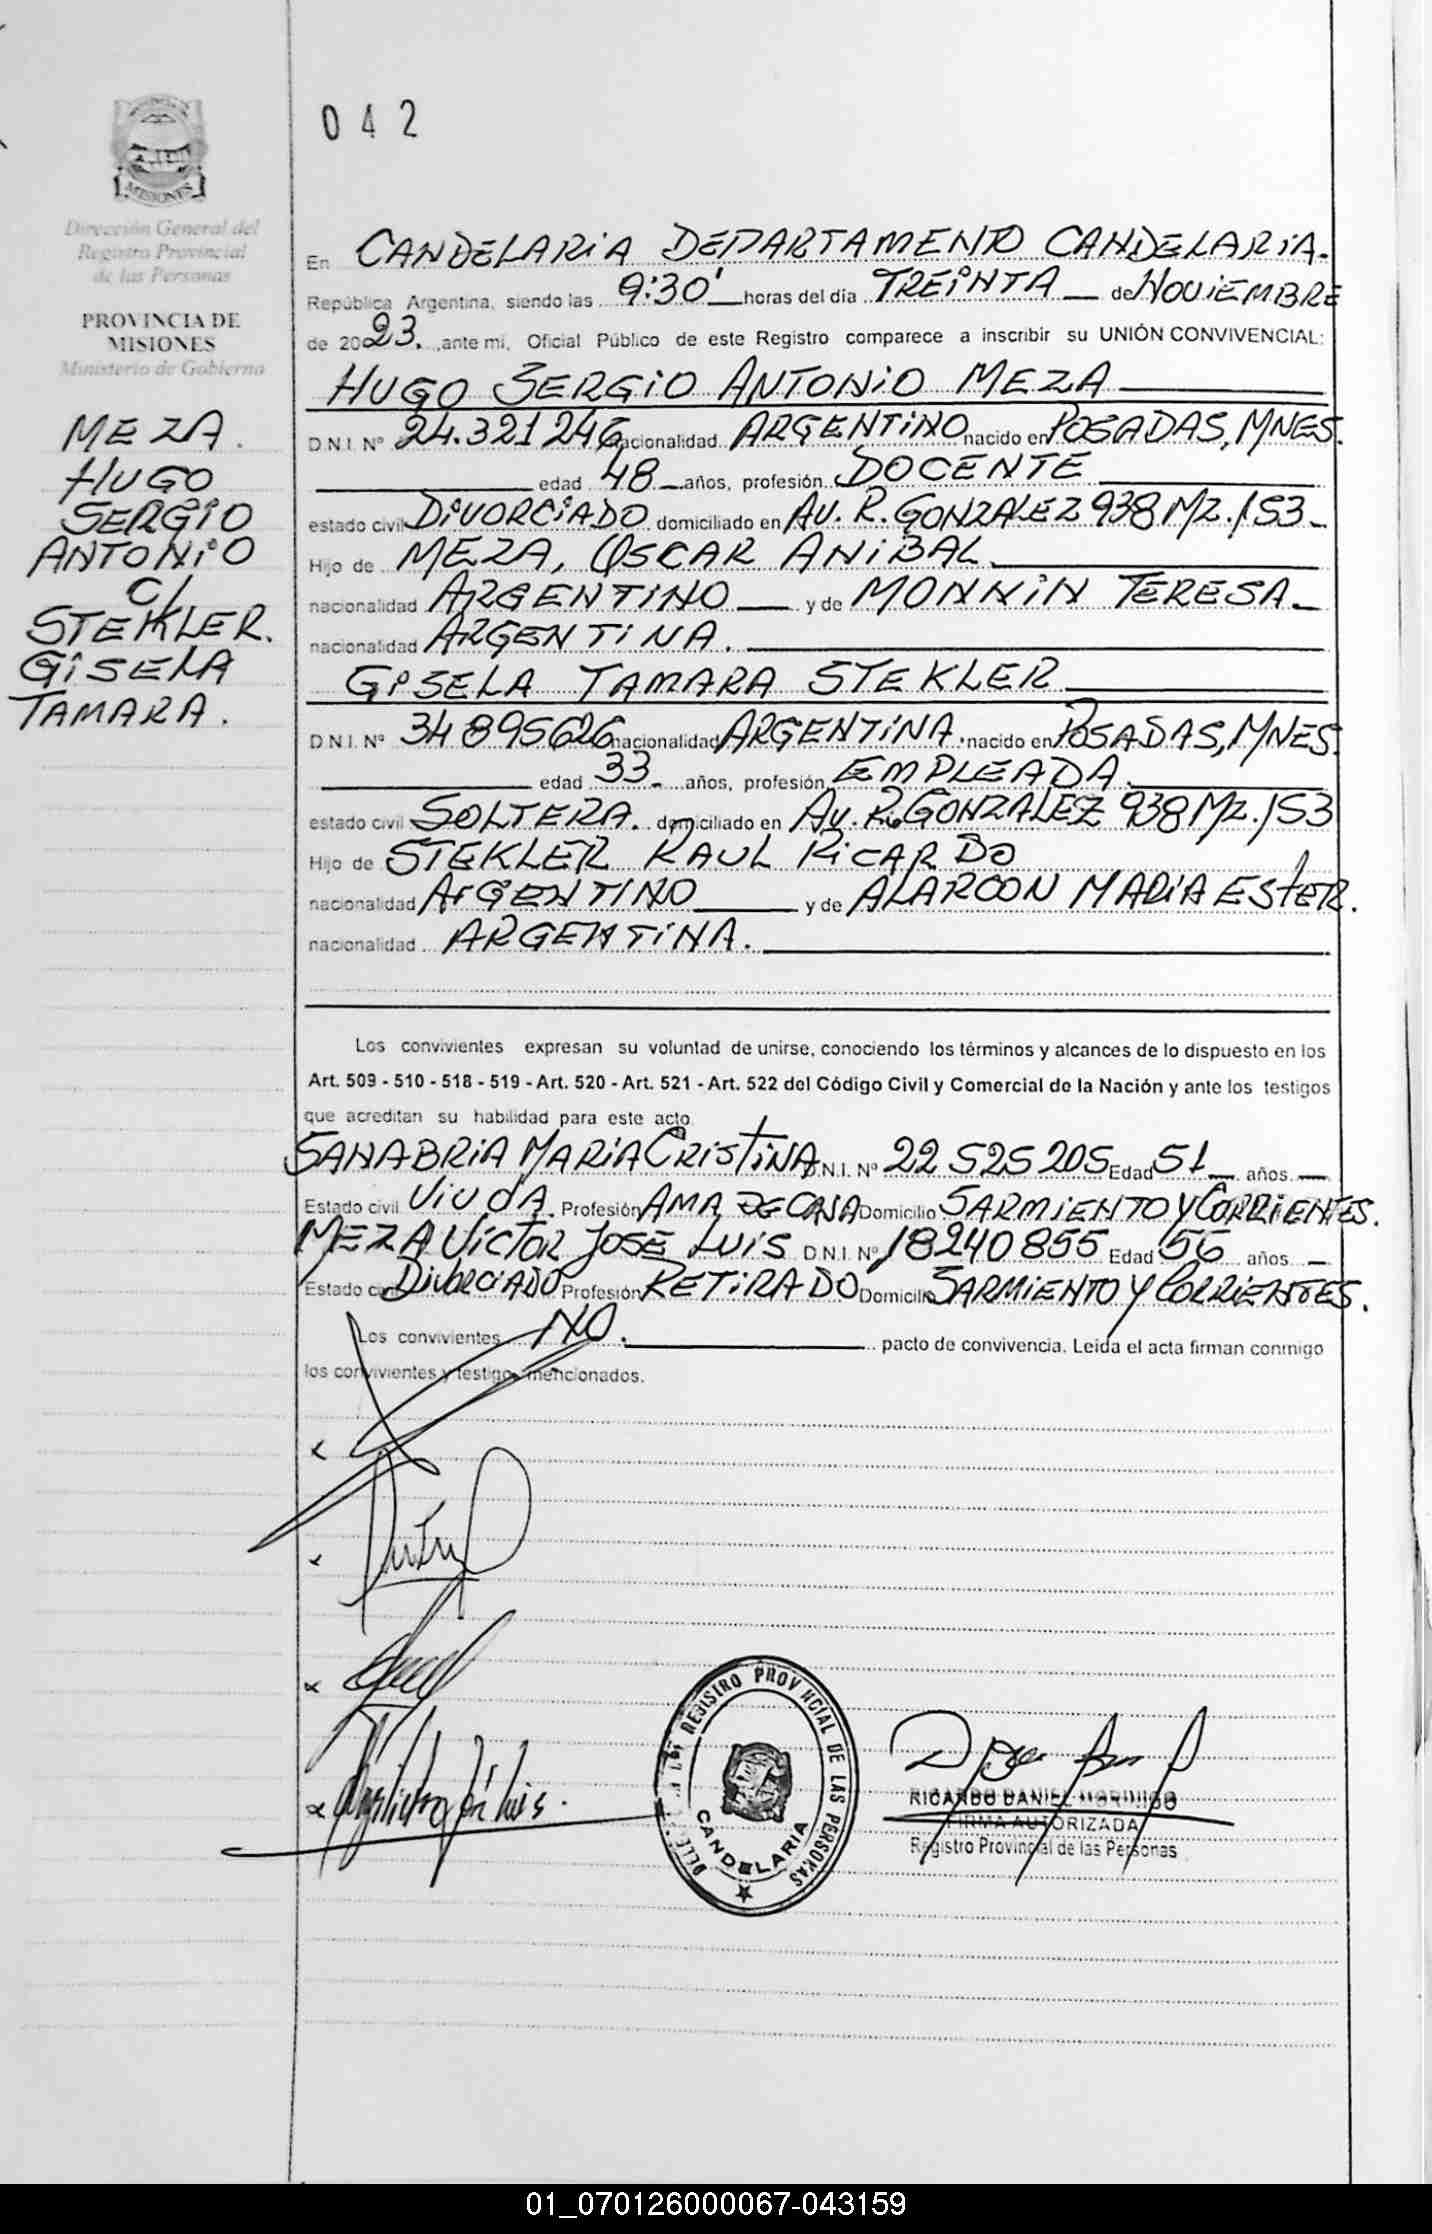 042
MISIONES
Dirección General del
Registro Provincial
de las Personas
PROVINCIA DE
MISIONES
Ministerio de Gobierno
MEZA.
HUGO
SERGIO
ANTONIO
C/
STEKLER.
GISELA
TAMARA.
En CANDELARIA DEPARTAMENTO CANDELARIA.
República Argentina, siendo las 9:30' horas del día TREINTA de NOVIEMBRE
de 2023. ,ante mí, Oficial Público de este Registro comparece a inscribir su UNIÓN CONVIVENCIAL:
HUGO SERGIO ANTONIO MEZA
D.N.I. Nº 24.321246 nacionalidad ARGENTINO nacido en POSADAS, MNES.
edad 48 años, profesión DOCENTE
estado civil DIVORCIADO domiciliado en AV. R. GONZALEZ 938 MZ. 153
Hijo de MEZA, OSCAR ANIBAL
nacionalidad ARGENTINO y de MONNIN TERESA
nacionalidad ARGENTINA.
GISELA TAMARA STEKLER
D.N.I. Nº 34895626 nacionalidad ARGENTINA. nacido en POSADAS, MNES.
edad 33 años, profesión EMPLEADA.
estado civil SOLTERA. domiciliado en AV. R. GONZALEZ 938 MZ. 153
Hijo de STEKLER RAUL RICARDO
nacionalidad ARGENTINO y de ALARCON MARIA ESTER.
nacionalidad ARGENTINA.
Los convivientes expresan su voluntad de unirse, conociendo los términos y alcances de lo dispuesto en los
Art. 509 - 510 - 518 - 519 - Art. 520 - Art. 521 - Art. 522 del Código Civil y Comercial de la Nación y ante los testigos
que acreditan su habilidad para este acto
SANABRIA MARIA CRISTINA D.N.I. Nº 22 525 205 Edad 51 años.
Estado civil VIUDA. Profesión AMA DE CASA Domicilio SARMIENTO Y CORRIENTES.
MEZA VICTOR JOSE LUIS D.N.I. Nº 18240855 Edad 56 años
Estado civil DIVORCIADO Profesión RETIRADO Domicilio SARMIENTO Y CORRIENTES.
Los convivientes NO. pacto de convivencia. Leída el acta firman conmigo
los convivientes y testigos mencionados.
REGISTRO PROVINCIAL DE LAS PERSONAS
CANDELARIA
RICARDO DANIEL MORINIGO
FIRMA AUTORIZADA
Registro Provincial de las Personas
01_070126000067-043159